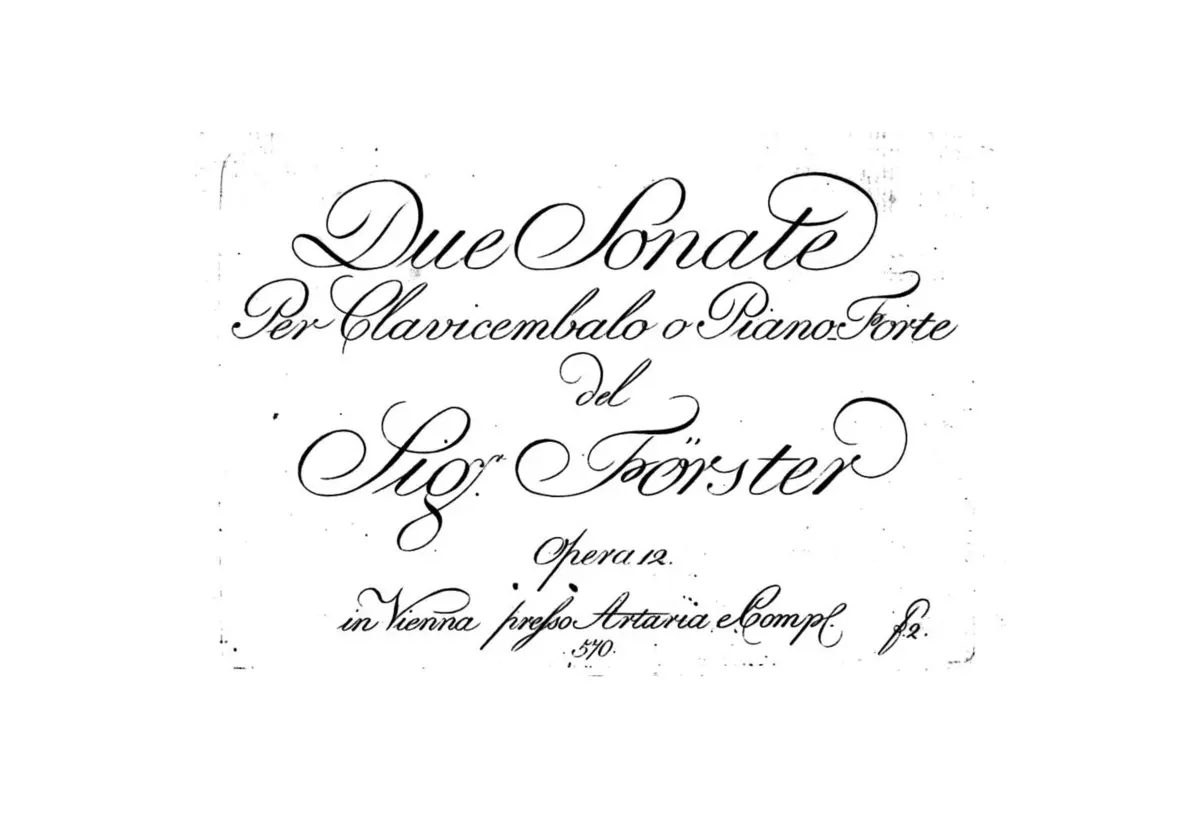 Due Sonate
Per Clavicembalo o Piano-Forte
del
Sigr. Förster
Opera 12.
in Vienna presso Artaria e Comp. f2.
570.